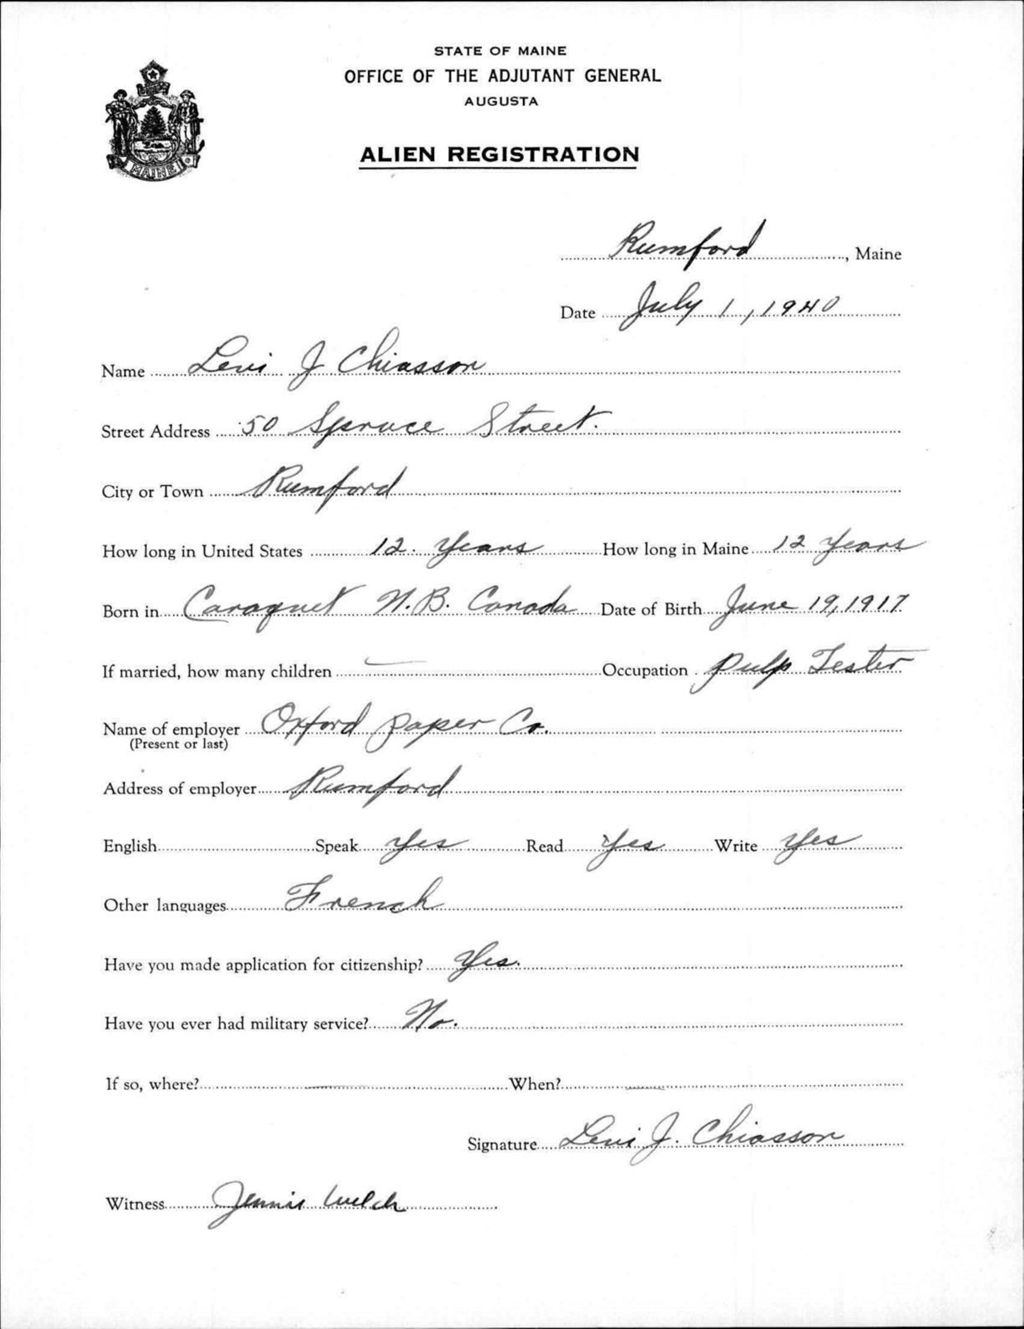 STATE OF MAINE
OFFICE OF THE ADJUTANT GENERAL
AUGUSTA
ALIEN REGISTRATION
MAINE
Rumford, Maine
Date July 1, 1940
Name Levi J Chiasson
Street Address 50 Spruce Street.
City or Town Rumford
How long in United States 12 Years How long in Maine 12 Years
Born in Caraquet N.B. Canada Date of Birth June 19, 1917
If married, how many children — Occupation Pulp Tester
Name of employer Oxford paper Co.
(Present or last)
Address of employer Rumford
English Speak Yes Read Yes Write Yes
Other languages French
Have you made application for citizenship? Yes.
Have you ever had military service? No.
If so, where? — When? —
Signature Levi J. Chiasson
Witness Jennie Welch